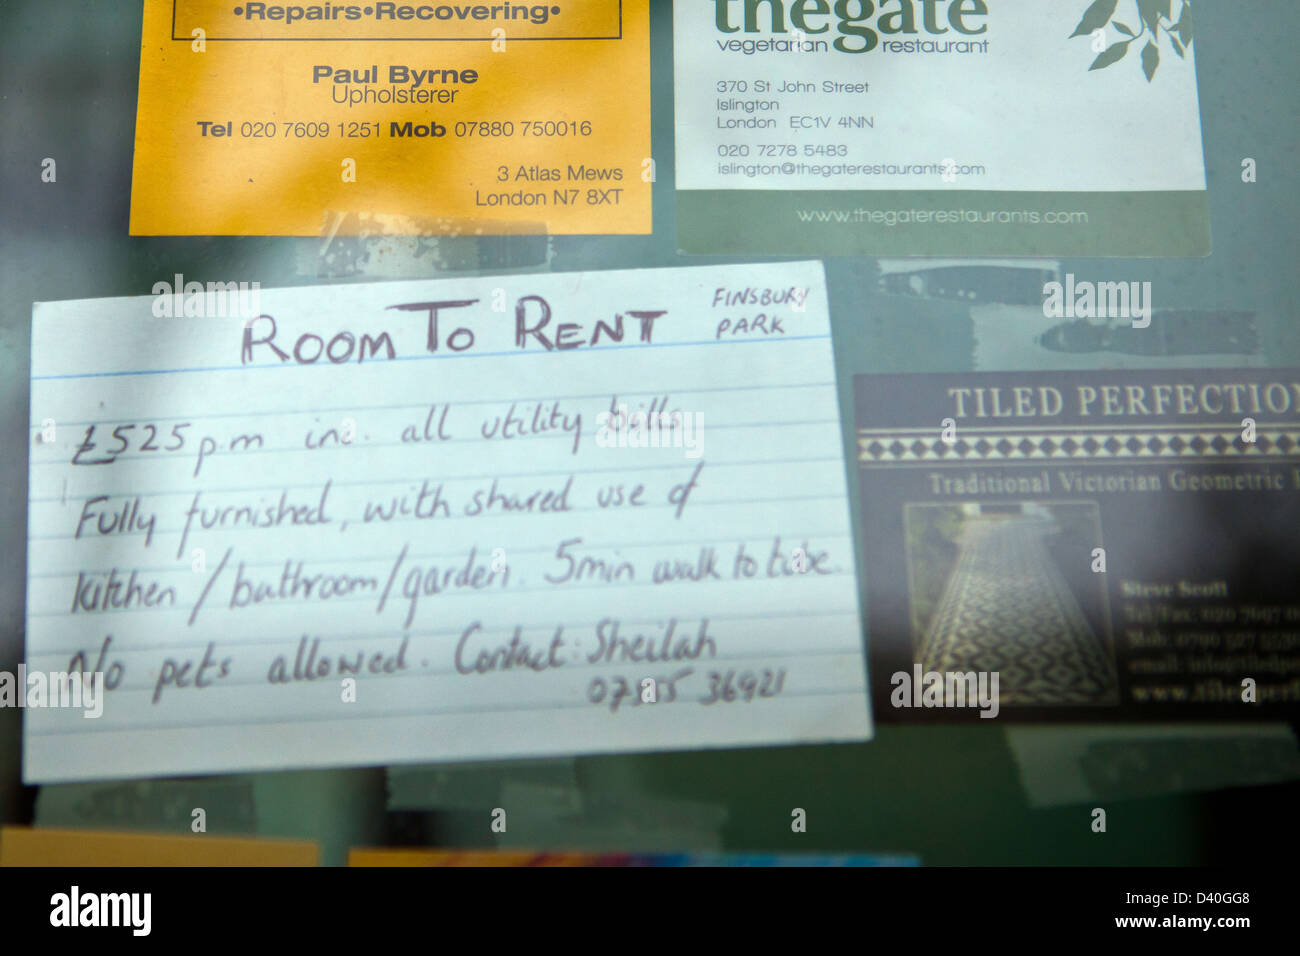 •Repairs•Recovering•
Paul Byrne
Upholsterer
Tel 020 7609 1251 Mob 07880 750016
3 Atlas Mews
London N7 8XT
thegate
vegetarian restaurant
370 St John Street
Islington
London EC1V 4NN
020 7278 5483
islington@thegaterestaurants.com
www.thegaterestaurants.com
ROOM TO RENT
FINSBURY
PARK
£525 p.m inc. all utility bills
Fully furnished, with shared use of
kitchen/bathroom/garden. 5min walk to tube.
No pets allowed. Contact: Sheilah
36921
TILED PERFECTION
Traditional Victorian Geometric
Steve Scott
Tel/Fax: 020 7697
Mob: 0790
email:
alamy
a
D40GG8
www.alamy.com